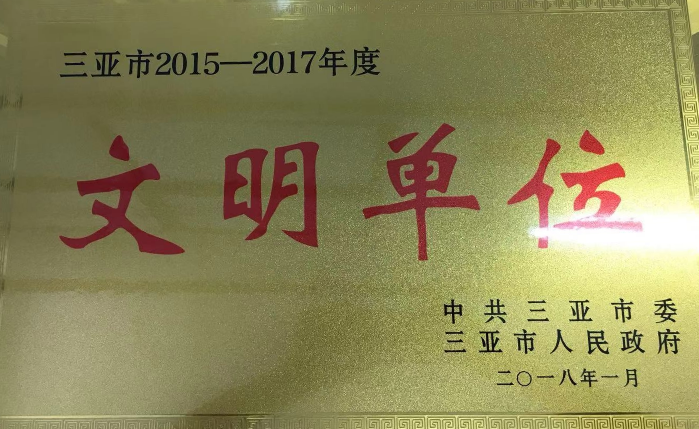 三亚市2015—2017年度
文明单位
中共三亚市委
三亚市人民政府
二〇一八年一月